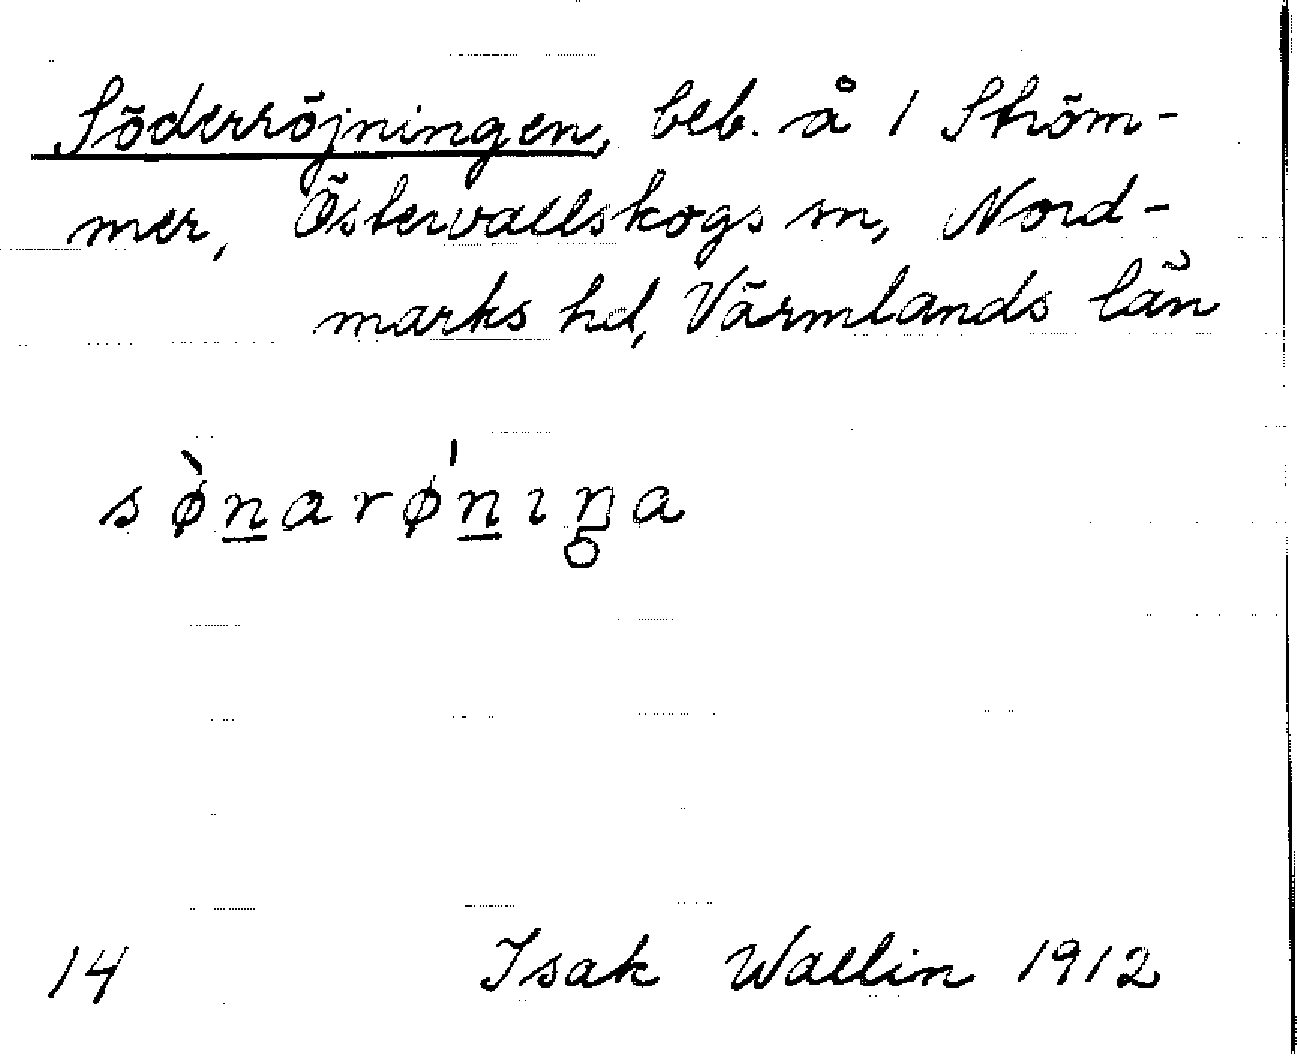 Söderröjningen, beb. å 1 Ström-
mer, Östervallskogs sn, Nord-
marks hd, Värmlands län
sø̀n̲arø̍n̲ıŋ̥a
14 Isak Wallin 1912